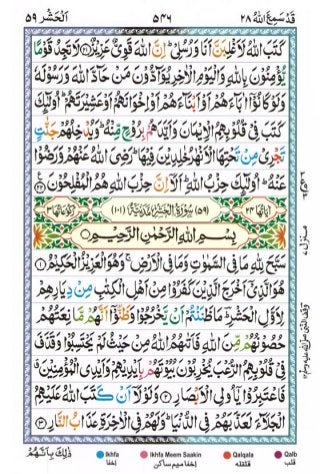 قَدْ سَمِعَ اللّٰهُ ٢٨
٥٤٦
اَلْحَشْر ٥٩
كَتَبَ اللّٰهُ لَاَغْلِبَنَّ اَنَا وَرُسُلِیْ ؕ اِنَّ اللّٰهَ قَوِیٌّ عَزِیْزٌ ﴿۲۱﴾ لَا تَجِدُ قَوْمًا
یُّؤْمِنُوْنَ بِاللّٰهِ وَالْیَوْمِ الْاٰخِرِ یُوَآدُّوْنَ مَنْ حَآدَّ اللّٰهَ وَرَسُوْلَهٗ
وَلَوْ كَانُوْۤا اٰبَآءَهُمْ اَوْ اَبْنَآءَهُمْ اَوْ اِخْوَانَهُمْ اَوْ عَشِیْرَتَهُمْ ؕ اُولٰٓئِكَ
كَتَبَ فِیْ قُلُوْبِهِمُ الْاِیْمَانَ وَاَیَّدَهُمْ بِرُوْحٍ مِّنْهُ ؕ وَیُدْخِلُهُمْ جَنّٰتٍ
تَجْرِیْ مِنْ تَحْتِهَا الْاَنْهٰرُ خٰلِدِیْنَ فِیْهَا ؕ رَضِیَ اللّٰهُ عَنْهُمْ وَرَضُوْا
عَنْهُ ؕ اُولٰٓئِكَ حِزْبُ اللّٰهِ ؕ اَلَاۤ اِنَّ حِزْبَ اللّٰهِ هُمُ الْمُفْلِحُوْنَ ﴿۲۲﴾
اٰیَاتُهَا ٢٤
(٥٩) سُوْرَةُ الْحَشْرِ مَدَنِیَّةٌ (١٠١)
رُكُوْعَاتُهَا ٣
بِسْمِ اللّٰهِ الرَّحْمٰنِ الرَّحِیْمِ
سَبَّحَ لِلّٰهِ مَا فِی السَّمٰوٰتِ وَمَا فِی الْاَرْضِ ۚ وَهُوَ الْعَزِیْزُ الْحَكِیْمُ ﴿۱﴾
هُوَ الَّذِیْۤ اَخْرَجَ الَّذِیْنَ كَفَرُوْا مِنْ اَهْلِ الْكِتٰبِ مِنْ دِیَارِهِمْ
لِاَوَّلِ الْحَشْرِ ؕ مَا ظَنَنْتُمْ اَنْ یَّخْرُجُوْا وَظَنُّوْۤا اَنَّهُمْ مَّا نِعَتُهُمْ
حُصُوْنُهُمْ مِّنَ اللّٰهِ فَاَتٰىهُمُ اللّٰهُ مِنْ حَیْثُ لَمْ یَحْتَسِبُوْا وَقَذَفَ
فِیْ قُلُوْبِهِمُ الرُّعْبَ یُخْرِبُوْنَ بُیُوْتَهُمْ بِاَیْدِیْهِمْ وَاَیْدِی الْمُؤْمِنِیْنَ ۗ
فَاعْتَبِرُوْا یٰۤاُولِی الْاَبْصَارِ ﴿۲﴾ وَلَوْلَاۤ اَنْ كَتَبَ اللّٰهُ عَلَیْهِمُ
الْجَلَآءَ لَعَذَّبَهُمْ فِی الدُّنْیَا ؕ وَلَهُمْ فِی الْاٰخِرَةِ عَذَابُ النَّارِ ﴿۳﴾
ذٰلِكَ بِاَنَّهُمْ
Ikhfa اخفا
Ikhfa Meem Saakin اخفا میم ساکن
Qalqala قلقله
Qalb قلب